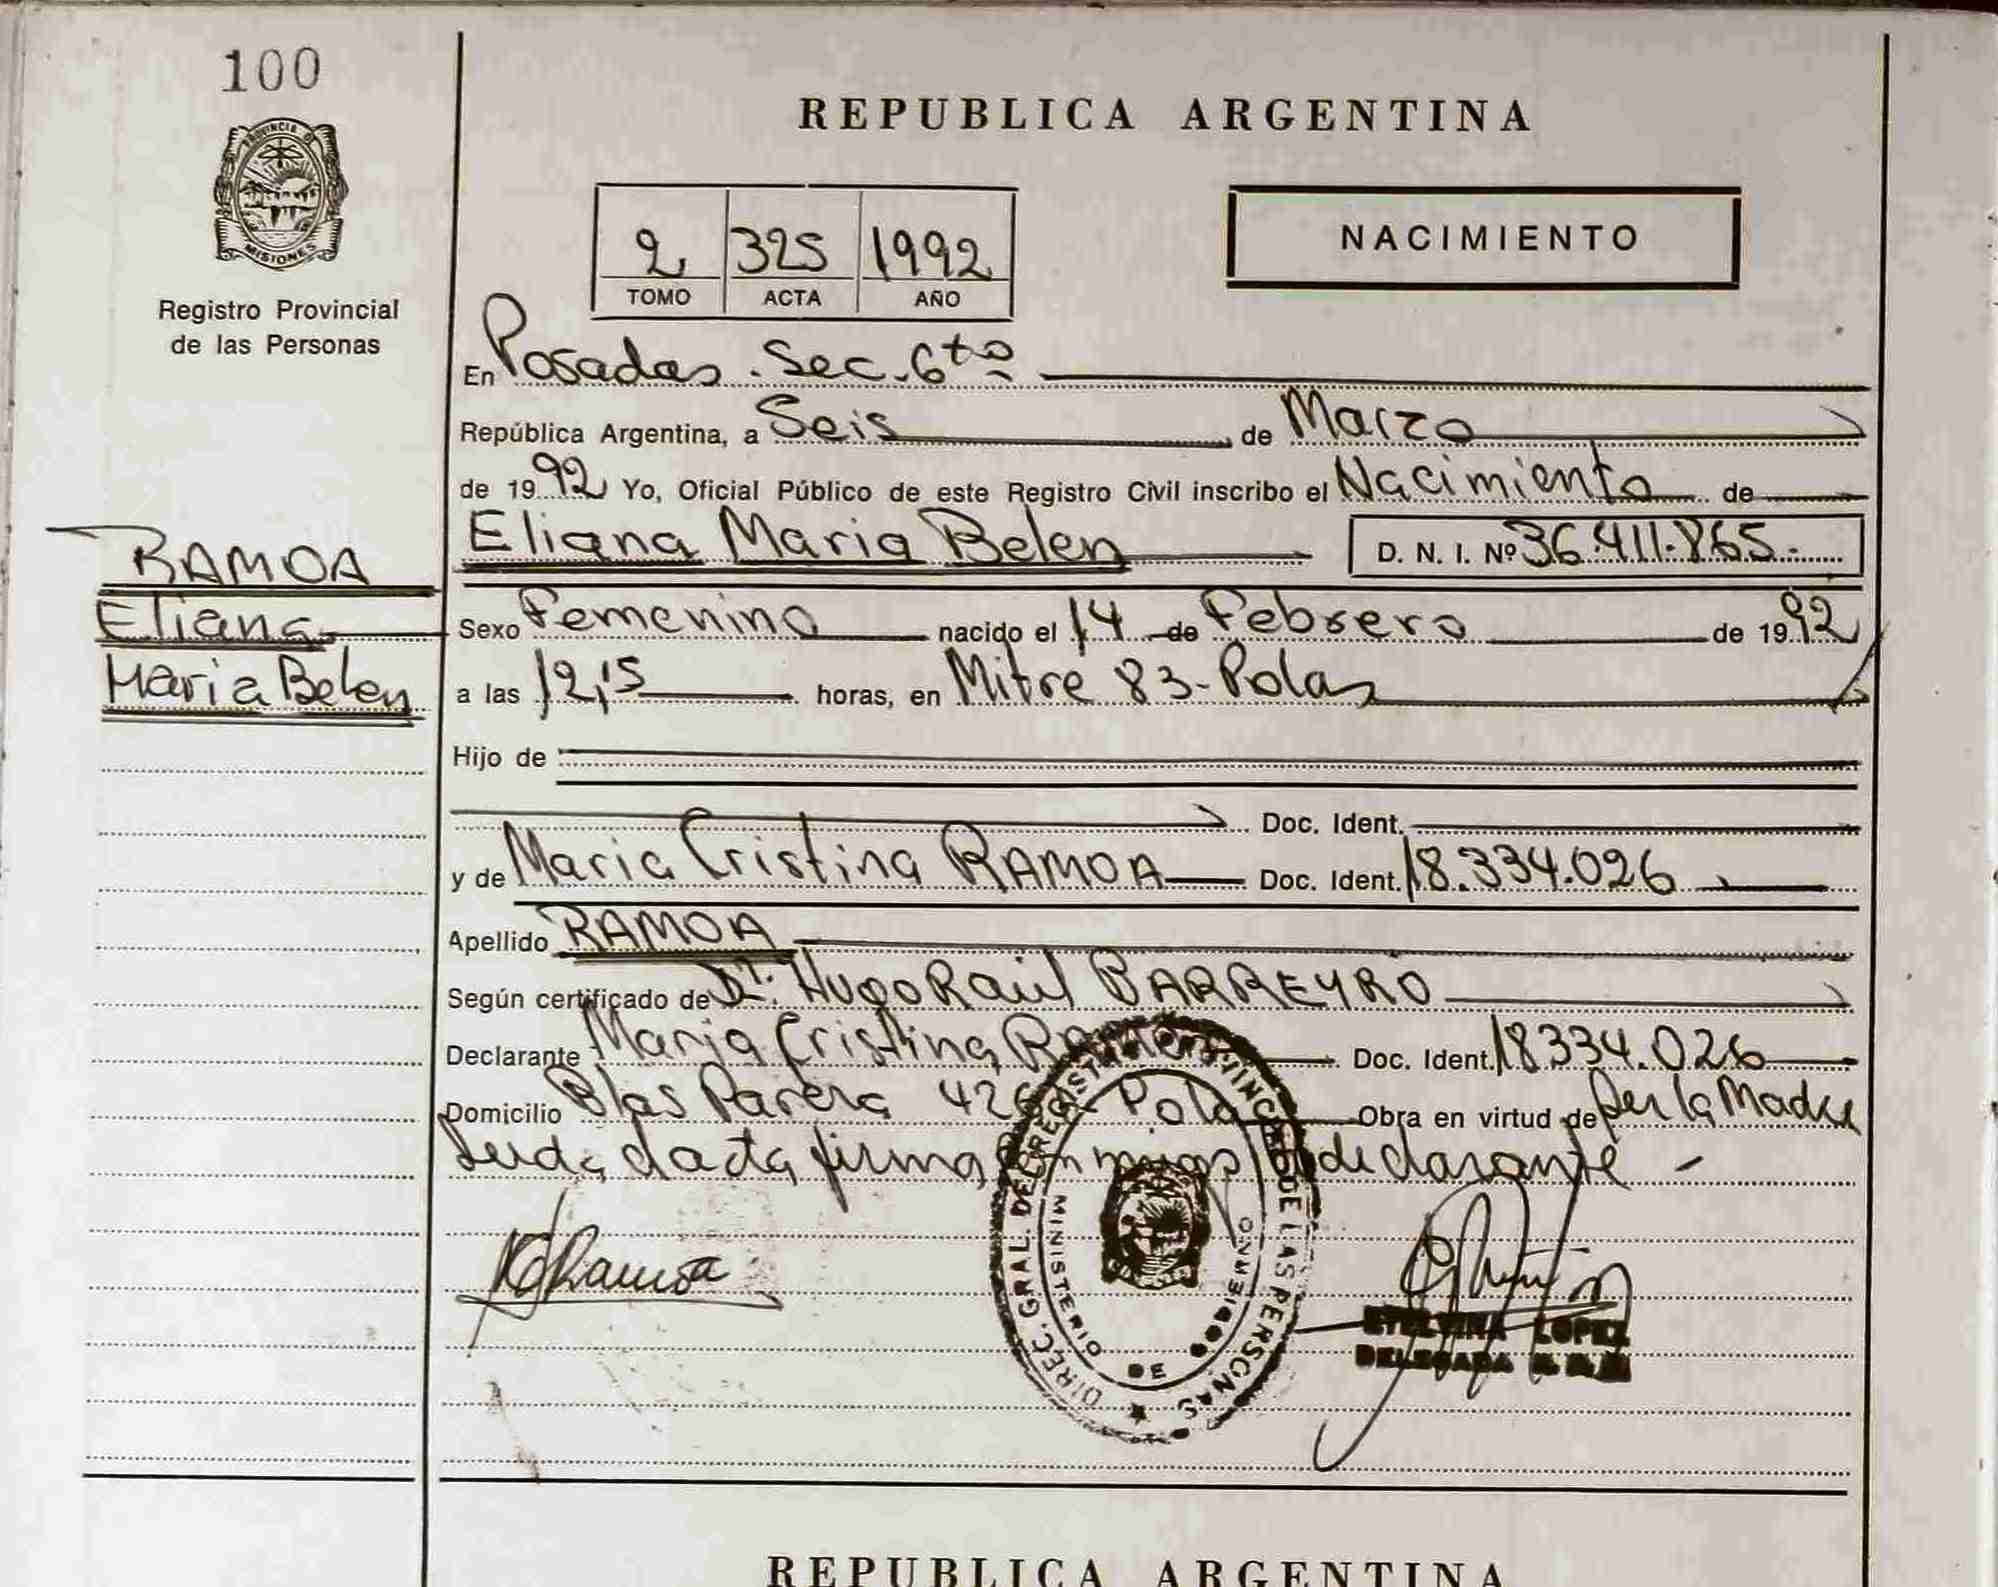 100
REPUBLICA ARGENTINA
PROVINCIA DE
MISIONES
Registro Provincial
de las Personas
2 325 1992
TOMO ACTA AÑO
NACIMIENTO
En Posadas. Sec. 6ta
República Argentina, a Seis de Marzo
de 1992 Yo, Oficial Público de este Registro Civil inscribo el Nacimiento de
Eliana Maria Belen D. N. I. Nº 36.411.865.-
RAMOA
Eliana
Maria Belen
Sexo Femenino nacido el 14 de Febrero de 1992
a las 12,15 horas, en Mitre 83-Pdas
Hijo de
Doc. Ident.
y de Maria Cristina RAMOA Doc. Ident. 18.334.026
Apellido RAMOA
Según certificado de Dr. Hugo Raúl BARREYRO
Declarante Maria Cristina Doc. Ident. 18334.026
Domicilio Blas Parera 426 - Pdas Obra en virtud de ser la Madre
Leida el acta, firma conmigo la declarante -
Ramoa
DIREC. GRAL. DEL REGIST PROVINC. DE LAS PERSONAS
MINISTERIO DE GOBIERNO
ETELVINA LOPEZ
DELEGADA
REPUBLICA ARGENTINA